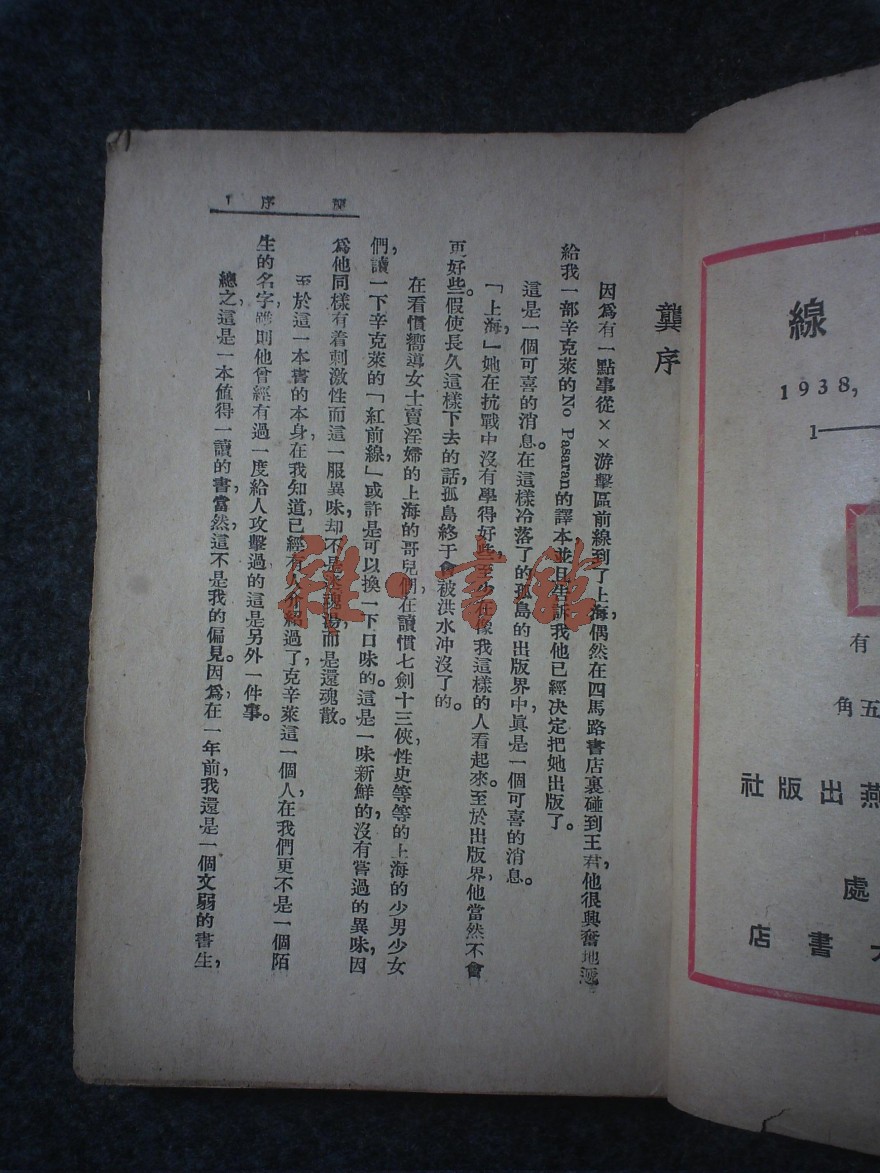 線
1938,
1—
有
五角
燕出版社
處
大書店
龔序
因爲有一點事從××游擊區前線到了上海,偶然在四馬路書店裏碰到王君,他很興奮地遞
給我一部辛克萊的No Pasaran的譯本並且告訴我他已經決定把她出版了。
這是一個可喜的消息。在這樣冷落了的孤島的出版界中,眞是一個可喜的消息。
「上海」她在抗戰中沒有學得好些,至少在像我這樣的人看起來。至於出版界,他當然不會
更好些。假使長久這樣下去的話,孤島終于會被洪水冲沒了的。
在看慣嚮導女士賣淫婦的上海的哥兒們,在讀慣七劍十三俠性史等等的上海的少男少女
們,讀一下辛克萊的「紅前線」或許是可以換一下口味的。這是一味新鮮的,沒有嘗過的異味,因
爲他同樣有着刺激性而這一服異味,却不是迷魂湯而是還魂散。
至於這一本書的本身,在我知道,已經有人介紹過了,克辛萊這一個人,在我們更不是一個陌
生的名字,雖則他曾經有過一度給人攻擊過的,這是另外一件事。
總之,這是一本值得一讀的書,當然,這不是我的偏見。因爲,在一年前,我還是一個文弱的書生,
龔序 1
雜·書館